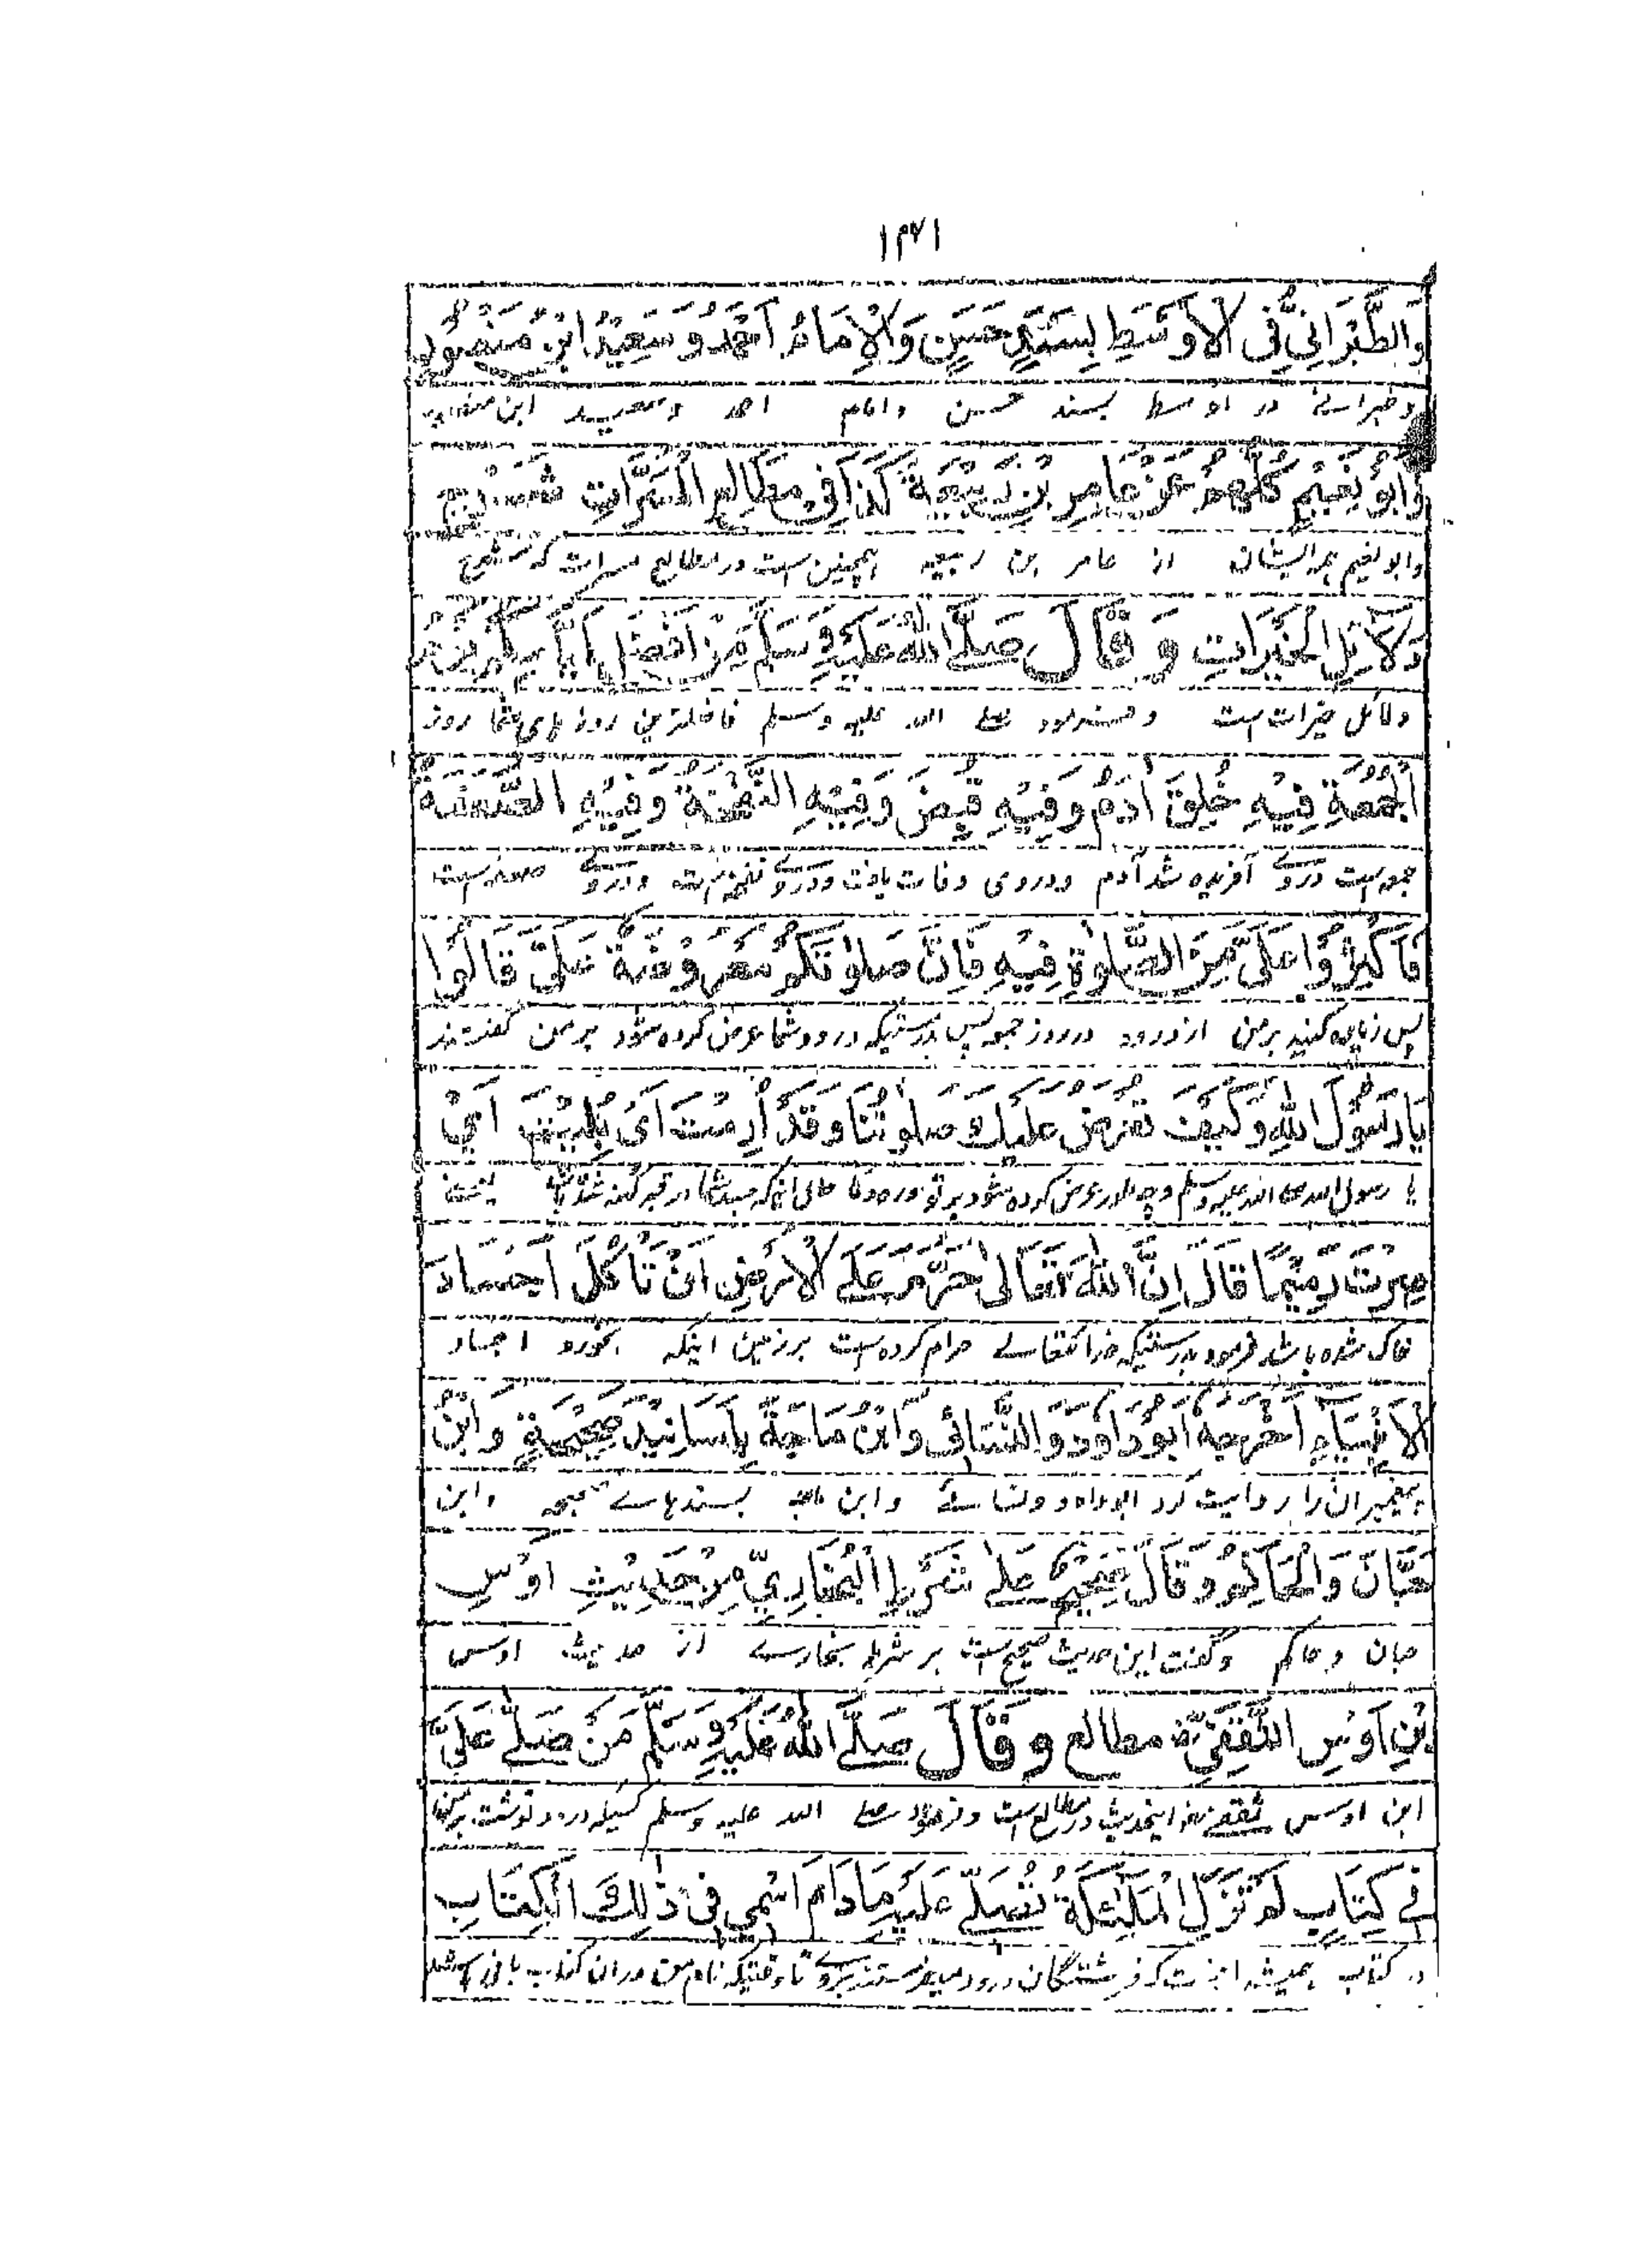 ۱۳۶۱
وَالطَّبَرَانِيُّ فِى الْاَوْسَطِ بِسَنَدٍ حَسَنٍ وَالْاِمَامُ اَحْمَدُ وَسَعِيْدُ ابْنُ مَنْصُوْرٍ
وطبرانے در اوسط بسند حسن وامام احمد وسعید ابن منصور
وَاَبُوْ نُعَيْمٍ كُلُّهُمْ عَنْ عَامِرِ بْنِ رَبِيْعَةَ كَذَا فِىْ مَطَالِعِ الْمَسَرَّاتِ شَرْحِ
وابو نعیم ہمہ ایشان از عامر بن ربیعہ ہمچنین است در مطالع مسرات کہ شرح
دَلَائِلِ الْخَيْرَاتِ وَ قَالَ صَلَّے اللّٰهُ عَلَيْهِ وَسَلَّمَ مِنْ اَفْضَلِ اَيَّامِكُمْ يَوْمُ
دلائل خیرات است وفرمود صلے اللہ علیہ وسلم فاضلترین روز ہای شما روز
الْجُمُعَةِ فِيْهِ خُلِقَ اٰدَمُ وَفِيْهِ قُبِضَ وَفِيْهِ النَّفْخَةُ وَفِيْهِ الصَّعْقَةُ
جمعہ است دروے آفریدہ شد آدم ودروی وفات یافت ودروے نفخہ است ودروے صعقہ است
فَاَكْثِرُوْا عَلَىَّ مِنَ الصَّلٰوةِ فِيْهِ فَاِنَّ صَلٰوتَكُمْ مَعْرُوْضَةٌ عَلَىَّ قَالُوْا
پس زیادہ کنید برمن از درود در روز جمعہ پس بدرستیکہ درود شما عرض کردہ شود بر من گفتند
يَا رَسُوْلَ اللّٰهِ وَكَيْفَ تُعْرَضُ عَلَيْكَ صَلٰوتُنَا وَقَدْ اَرِمْتَ اَىْ بَلِيْتَ اَىْ
یا رسول اللہ صلے اللہ علیہ وسلم وچہ طور عرض کردہ شود بر تو درود ما حال اینکہ جسد شما در قبر کہنہ شدہ
صِرْتَ رَمِيْمًا قَالَ اِنَّ اللّٰهَ تَعَالٰى حَرَّمَ عَلَے الْاَرْضِ اَنْ تَاْكُلَ اَجْسَادَ
خاک شدہ باشد فرمود بدرستیکہ خدا تعالے حرام کردہ است بر زمین اینکہ بخورد اجساد
الْاَنْبِيَآءِ اَخْرَجَهُ اَبُوْ دَاوٗدَ وَ النَّسَائِىُّ وَابْنُ مَاجَةَ بِاَسَانِيْدَ صَحِيْحَةٍ وَ ابْنُ
پیغمبران را روایت کرد ابو داود ونسائے وابن ماجہ بسندہاے صحیحہ وابن
حَبَّانَ وَالْحَاكِمُ وَقَالَ صَحِيْحٌ عَلٰے شَرْطِ الْبُخَارِىِّ مِنْ حَدِيْثِ اَوْسِ
حبان وحاکم وگفت این حدیث صحیح است بر شرط بخارے از حدیث اوس
بْنِ اَوْسِ الثَّقَفِىِّ مطالع وَ قَالَ صَلَّے اللّٰهُ عَلَيْهِ وَسَلَّمَ مَنْ صَلّٰے عَلَىَّ
ابن اوس ثقفے اینحدیث در مطالع است وفرمود صلے اللہ علیہ وسلم کسیکہ درود نوشت برمن
فِے كِتَابٍ لَمْ تَزَلِ الْمَلٰئِكَةُ تُصَلِّے عَلَيْهِ مَا دَامَ اسْمِىْ فِىْ ذٰلِكَ الْكِتَابِ
در کتاب ہمیشہ است کہ فرشتگان درود میفرستند بروے تا وقتیکہ نام من در ان کتاب باقی باشد